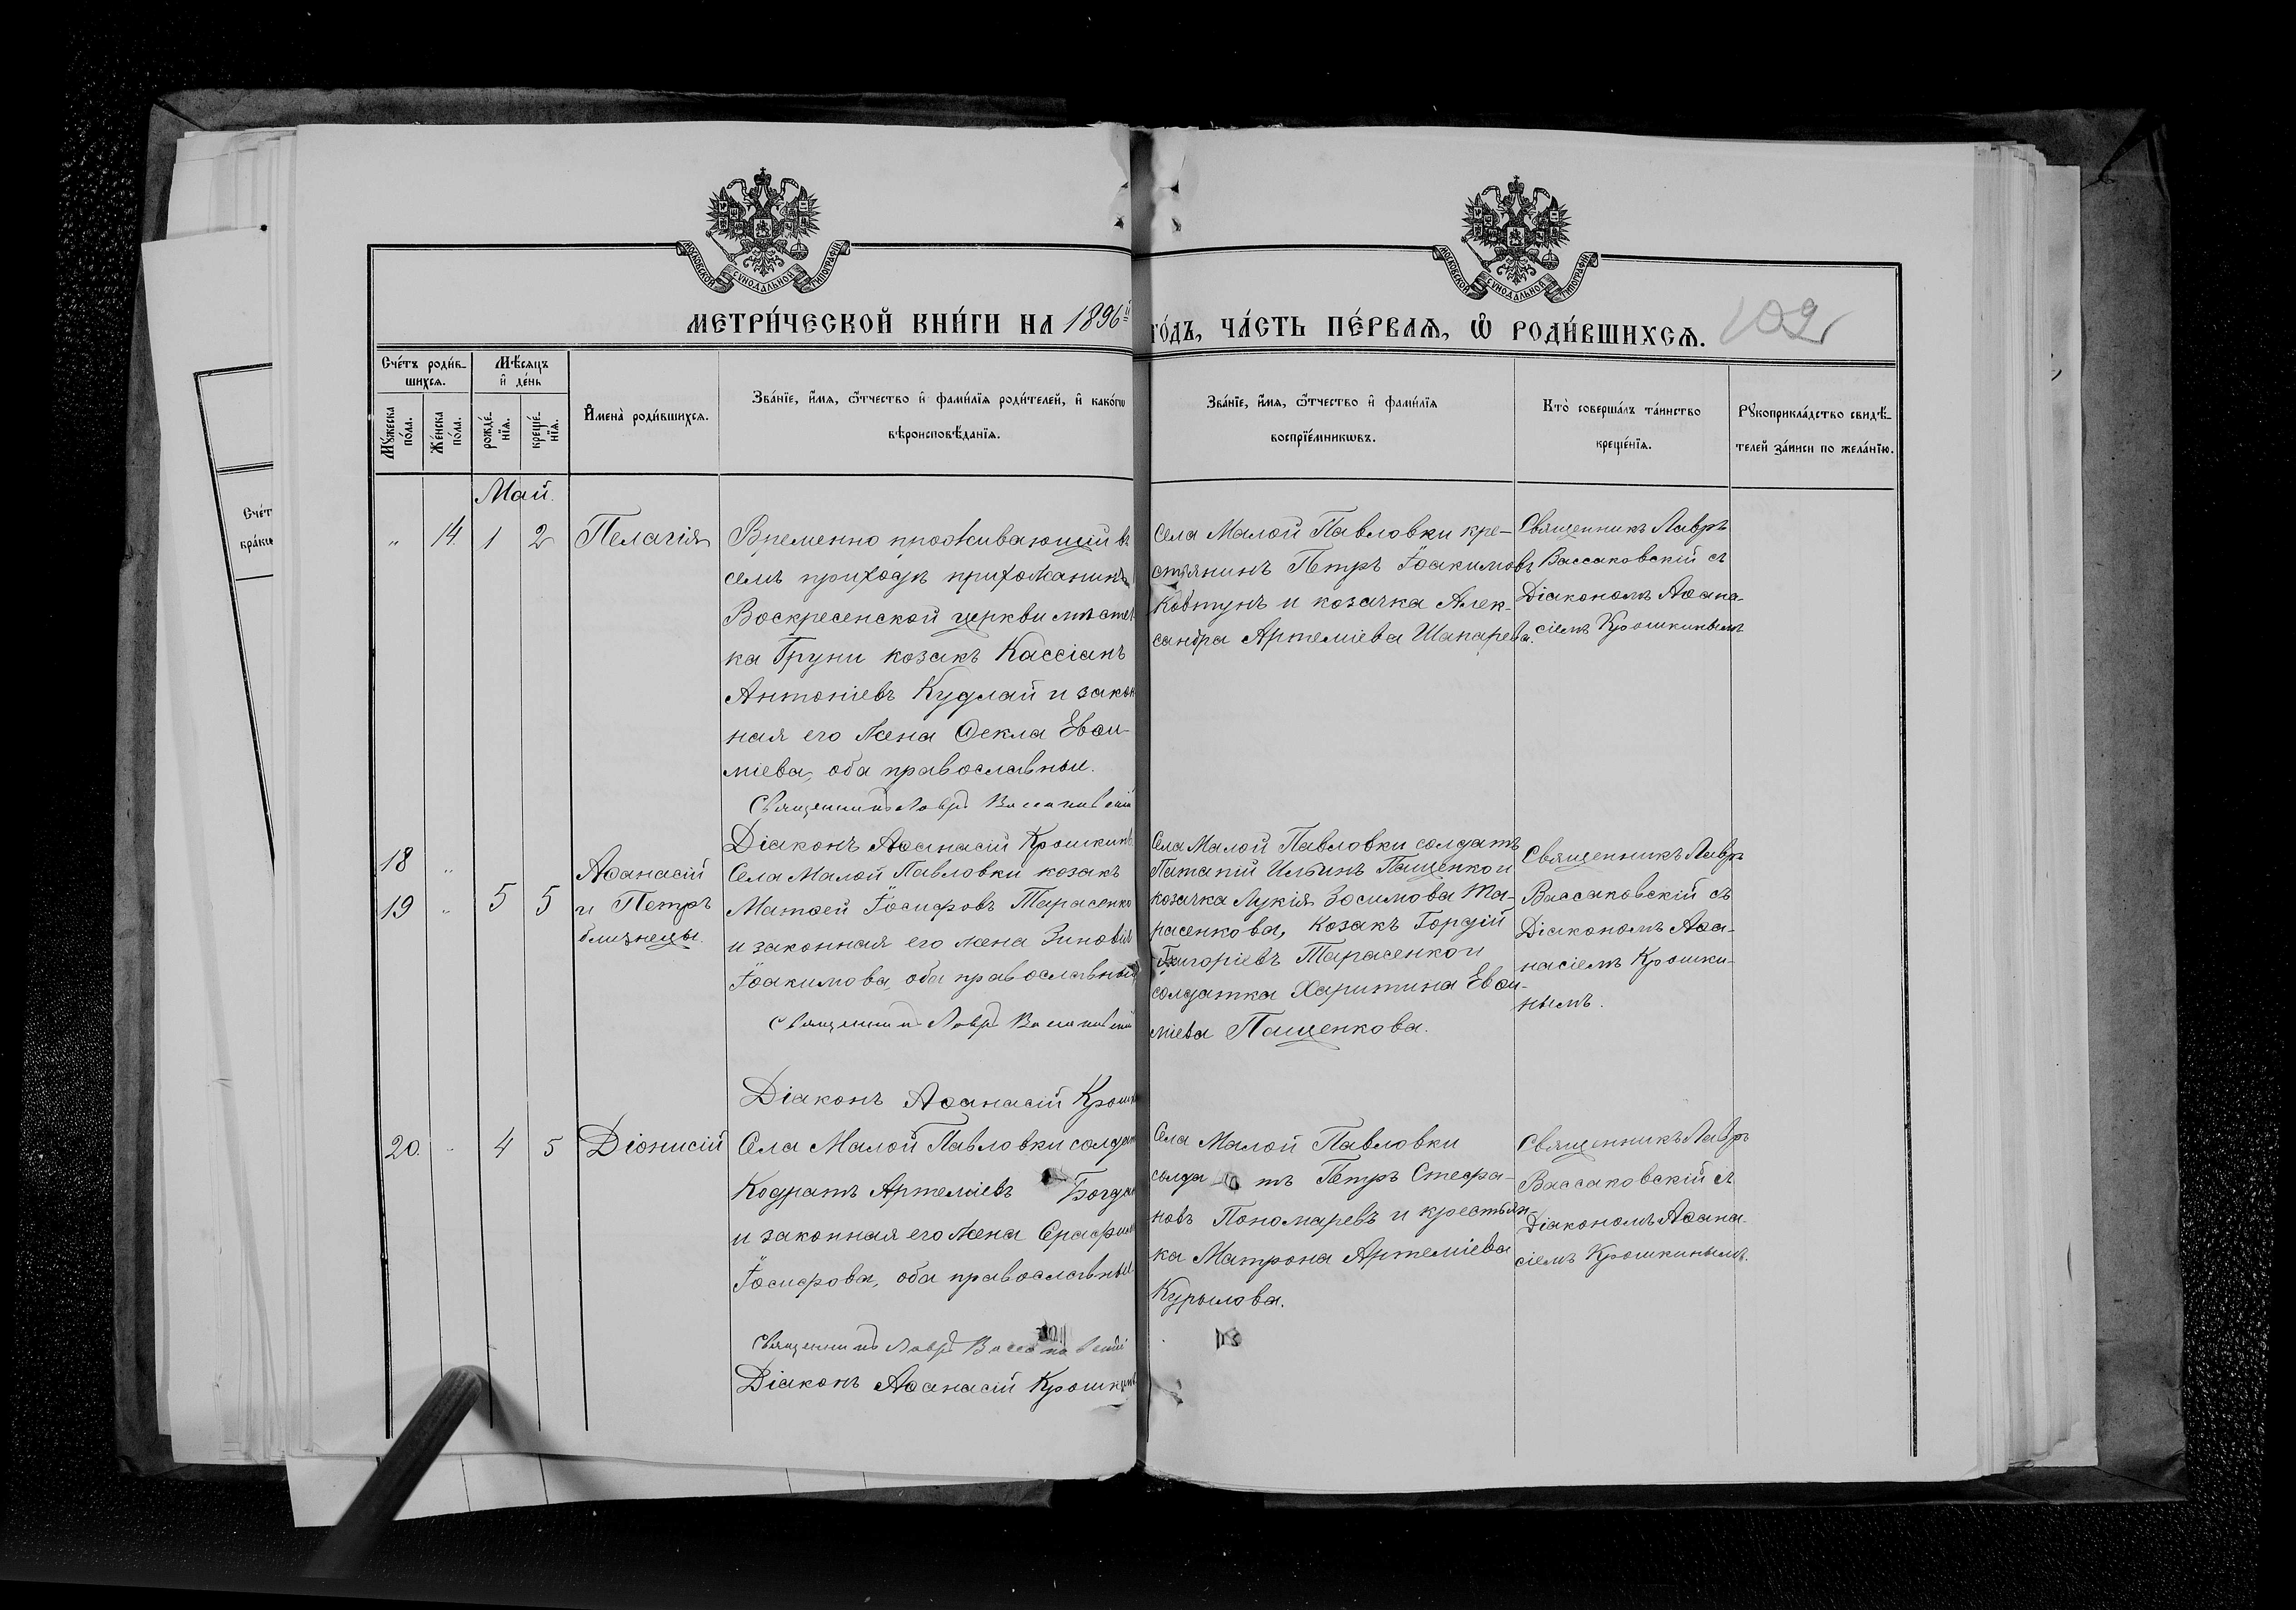 МОСКОВСКОЙ СѴНОДАЛЬНОЙ ТИПОГРАФІИ
МОСКОВСКОЙ СѴНОДАЛЬНОЙ ТИПОГРАФІИ
МЕТРИ́ЧЕСКОЙ КНИ́ГИ НА 1896й
ГО́ДЪ, ЧА́СТЬ ПЕ́РВАѦ, Ѽ РОДИ́ВШИХСѦ.
102
Сче́тъ роди́в-
шихсѧ.
Мꙋ́жеска
по́ла.
Же́нска
по́ла.
Мѣ́сѧцъ
и҆ де́нь
рожде́-
нїѧ.
креще́-
нїѧ.
И҆мена̀ роди́вшихсѧ.
Зва́нїе, и҆́мѧ, ѻ҆́тчество и҆ фами́лїѧ роди́телей, и҆ како́гѡ
вѣроисповѣ́данїѧ.
Зва́нїе, и҆́мѧ, ѻ҆́тчество и҆ фами́лїѧ
воспрїе́мникѡвъ.
Кто̀ соверша́лъ та́инство
креще́нїѧ.
Рꙋкоприкла́дство свидѣ́-
телей за́писи по жела́нїю.
Сче́т
бра́кѡ
Май.
" 14. 1 2 Пелагія
Временно проживающий въ
семъ приходѣ прихожанинъ
Воскресенской церкви мѣстеч
ка Груни козакъ Кассіанъ
Антоніевъ Кудлай и закон
ная его жена Ѳекла Евѳи-
міева, оба православные.
Священникъ Лавръ Вассаковскій
Діаконъ Аѳанасій Крошкинъ
Села Малой Павловки кре-
стьянинъ Петръ Іоакимовъ
Ковтунъ и козачка Алек-
сандра Артеміева Шапарева.
Священникъ Лавръ
Вассаковскій съ
Діакономъ Аѳана-
сіемъ Крошкинымъ
18 "
19 " 5 5
Аѳанасій
и Петръ
близнецы.
Села Малой Павловки козакъ
Матѳей Іосифовъ Тарасенко
и законная его жена Зиновія
Іоакимова, оба православные
Священникъ Лавръ Вассаковскій
Діаконъ Аѳанасій Крошк
Села Малой Павловки солдатъ
Патапій Ильинъ Пащенко и
козачка Лукія Зосимова Та-
расенкова, козакъ Гордій
Григоріевъ Тарасенко и
солдатка Харитина Евѳи-
міева Пащенкова.
Священникъ Лавръ
Вассаковскій съ
Діакономъ Аѳа-
насіемъ Крошки-
нымъ.
20. " 4 5 Діонисій
Села Малой Павловки солдат
Кодратъ Артеміевъ Богдан
и законная его жена Серафим
Іосифова, оба православные
Священникъ Лавръ Вассаковскій
Діаконъ Аѳанасій Крошкинъ
Села Малой Павловки
солда тъ Петръ Стефа-
новъ Пономаревъ и крестьян-
ка Матрона Артеміева
Курылова.
Священникъ Лавръ
Вассаковскій съ
Діакономъ Аѳана-
сіемъ Крошкинымъ.